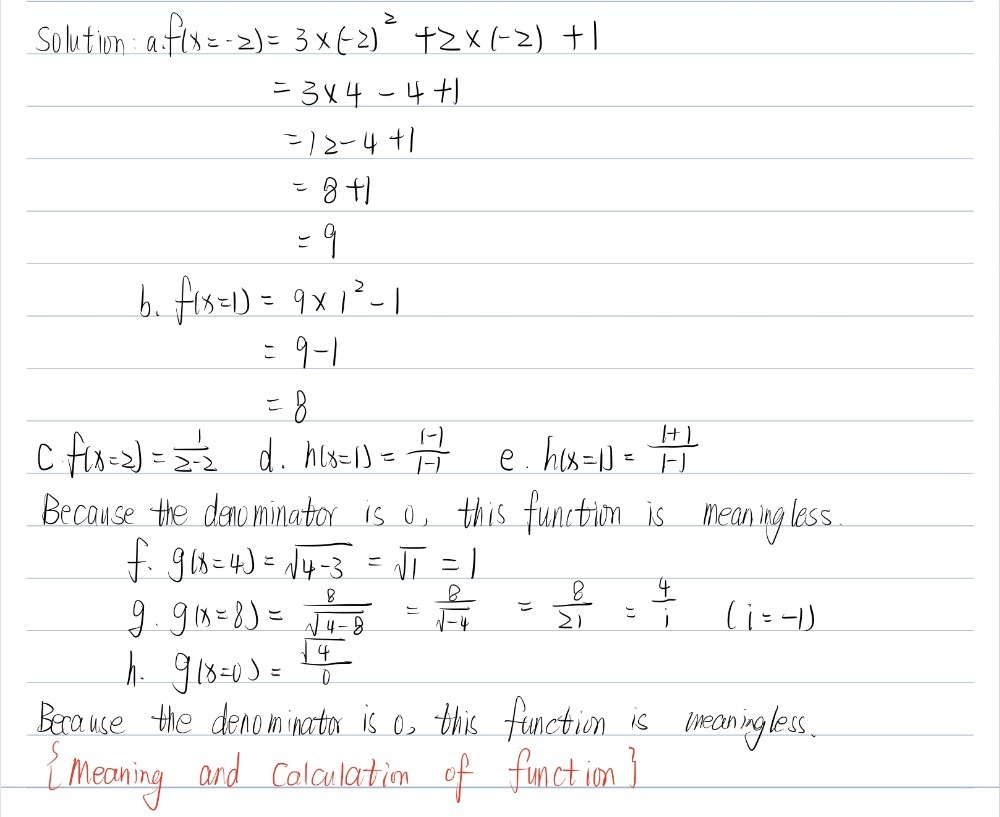 Solution: a. f(x=-2) = 3×(-2)² +2×(-2) +1
= 3×4 - 4 +1
= 12-4 +1
= 8 +1
= 9
b. f(x=1) = 9×1² - 1
= 9-1
= 8
c. f(x=2) = 1/(2-2) d. h(x=1) = (1-1)/(1-1) e. h(x=1) = (1+1)/(1-1)
Because the denominator is 0, this function is meaningless.
f. g(x=4) = √(4-3) = √1 = 1
g. g(x=8) = 8/√(4-8) = 8/√-4 = 8/2i = 4/i (i=-1)
h. g(x=0) = √4/0
Because the denominator is 0, this function is meaningless.
{Meaning and Calculation of function}